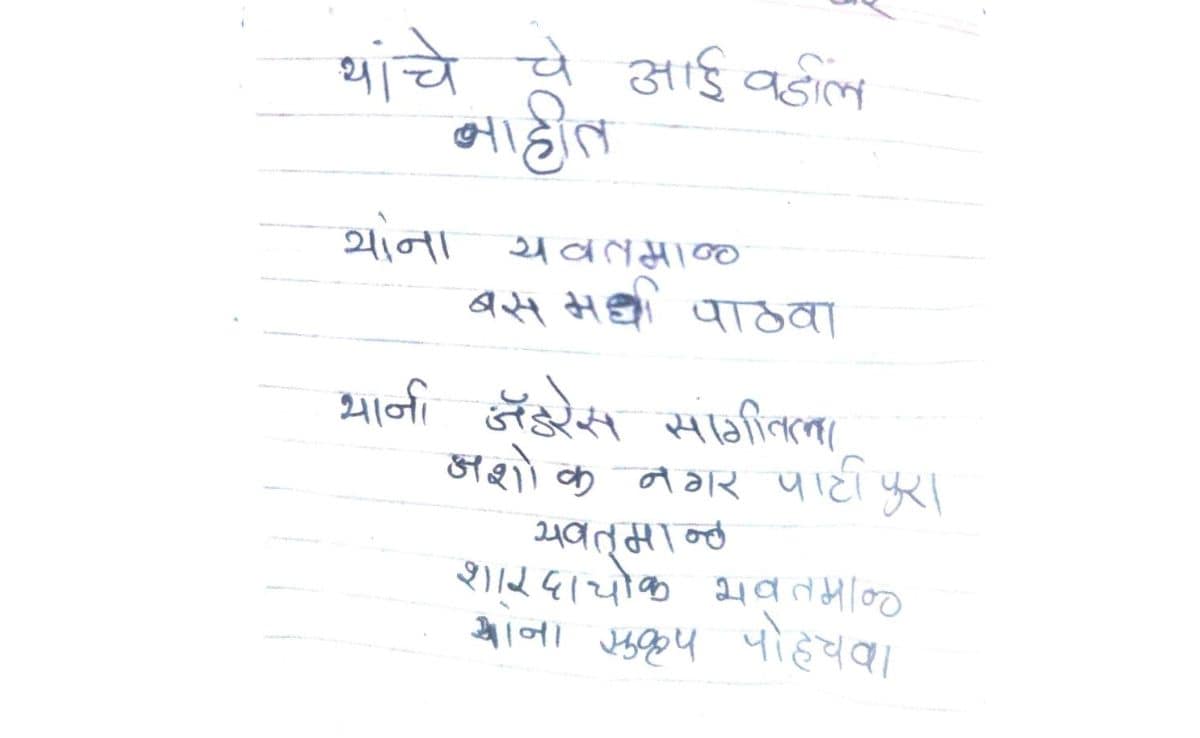 यांचे चे आई वडील
नाहीत
यांना यवतमाळ
बस मधी पाठवा
यानी अॅडरेस सागीतला
अशोक नगर पाटी पुरा
यवतमाळ
शारदाचोक यवतमाळ
यांना सुकृप पोहचवा